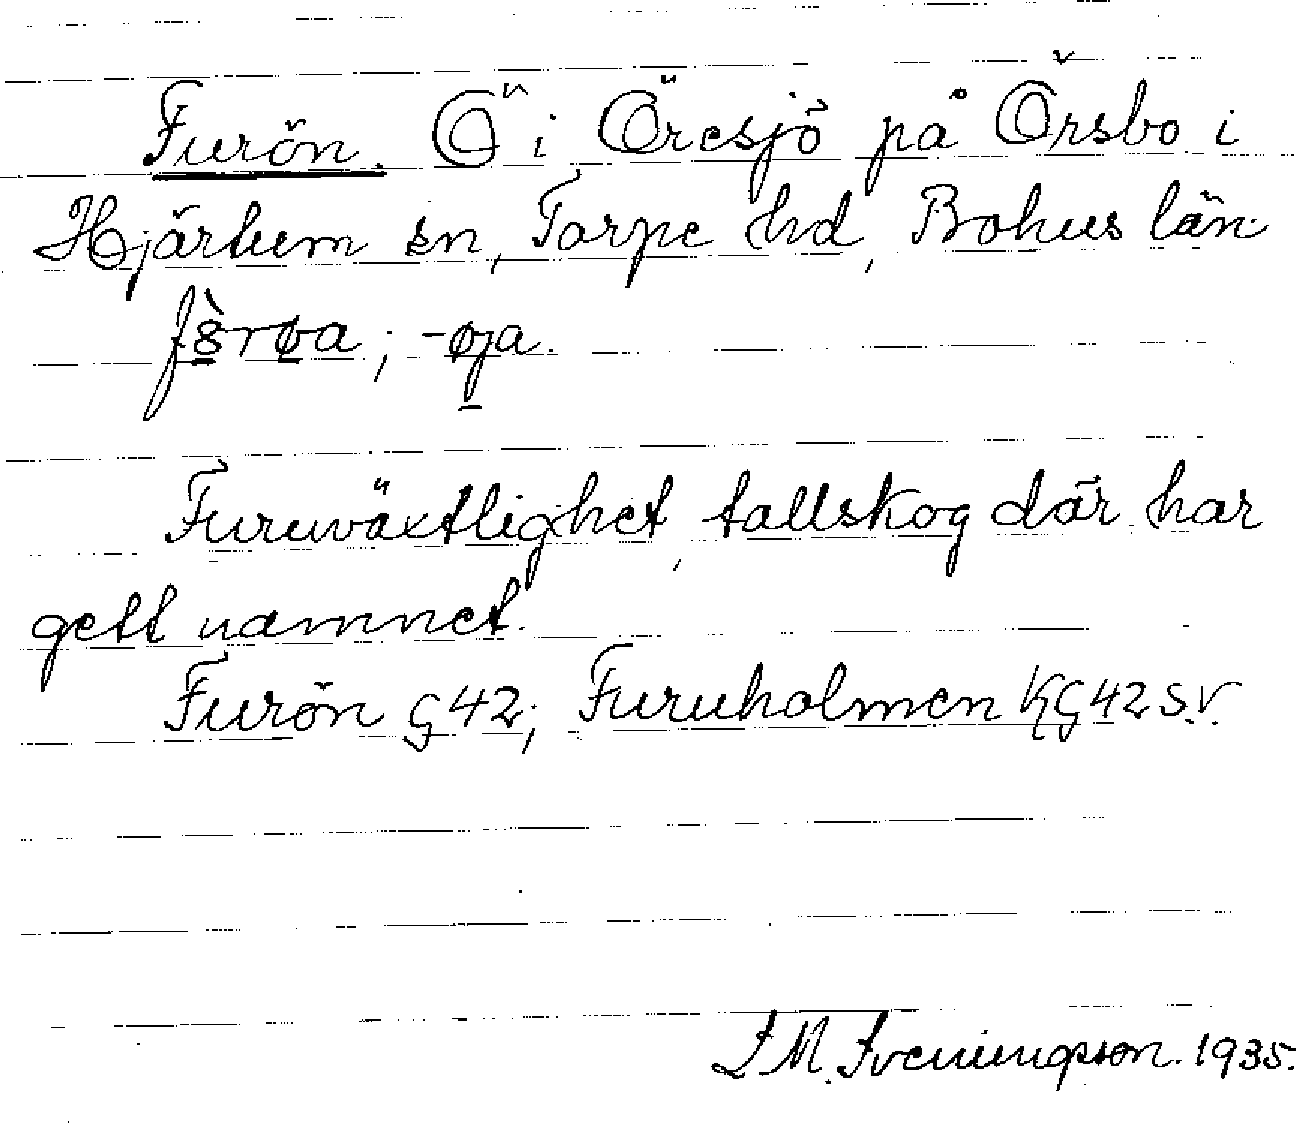 Furön. Ö i Öresjö på Örsbo i
Hjärtum sn, Torpe hd, Bohus län.
f8̀røa; -øja.
Furuväxtlighet, tallskog där har
gett namnet.
Furön G42; Furuholmen KG42 S.V.
J M. Sveningsson. 1935.